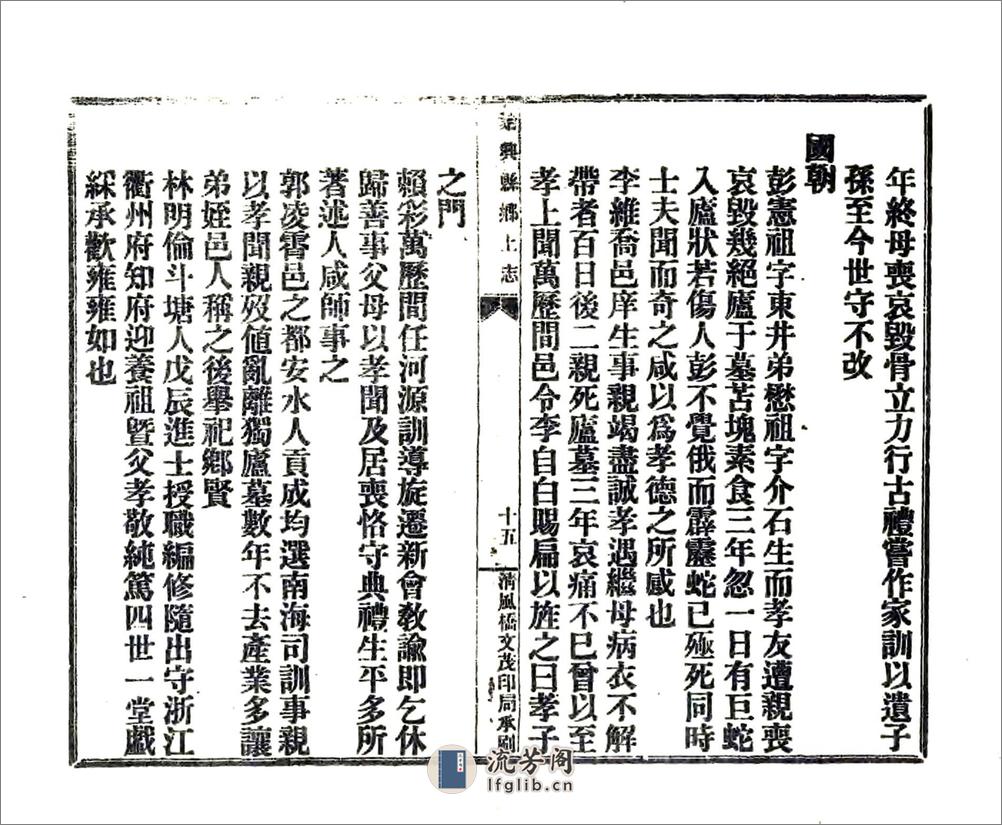 年終母喪哀毀骨立力行古禮嘗作家訓以遺子
孫至今世守不改
國朝
彭憲祖字東井弟懋祖字介石生而孝友遭親喪
哀毀幾絕廬于墓苫塊素食三年忽一日有巨蛇
入廬狀若傷人彭不覺俄而霹靂蛇已殛死同時
士夫聞而奇之咸以爲孝德之所感也
李維喬邑庠生事親竭盡誠孝遇繼母病衣不解
帶者百日後二親死廬墓三年哀痛不已曾以至
孝上聞萬歷間邑令李自白賜扁以旌之曰孝子
始興縣鄉土志
十五
清風橋文茂印局承刷
之門
賴彩萬歷間任河源訓導旋遷新會敎諭即乞休
歸善事父母以孝聞及居喪恪守典禮生平多所
著述人咸師事之
郭凌霄邑之都安水人貢成均選南海司訓事親
以孝聞親歿値亂離獨廬墓數年不去產業多讓
弟姪邑人稱之後舉祀鄉賢
林明倫斗塘人戊辰進士授職編修隨出守浙江
衢州府知府迎養祖暨父孝敬純篤四世一堂戲
綵承歡雍雍如也
流芳阁
lfglib.cn